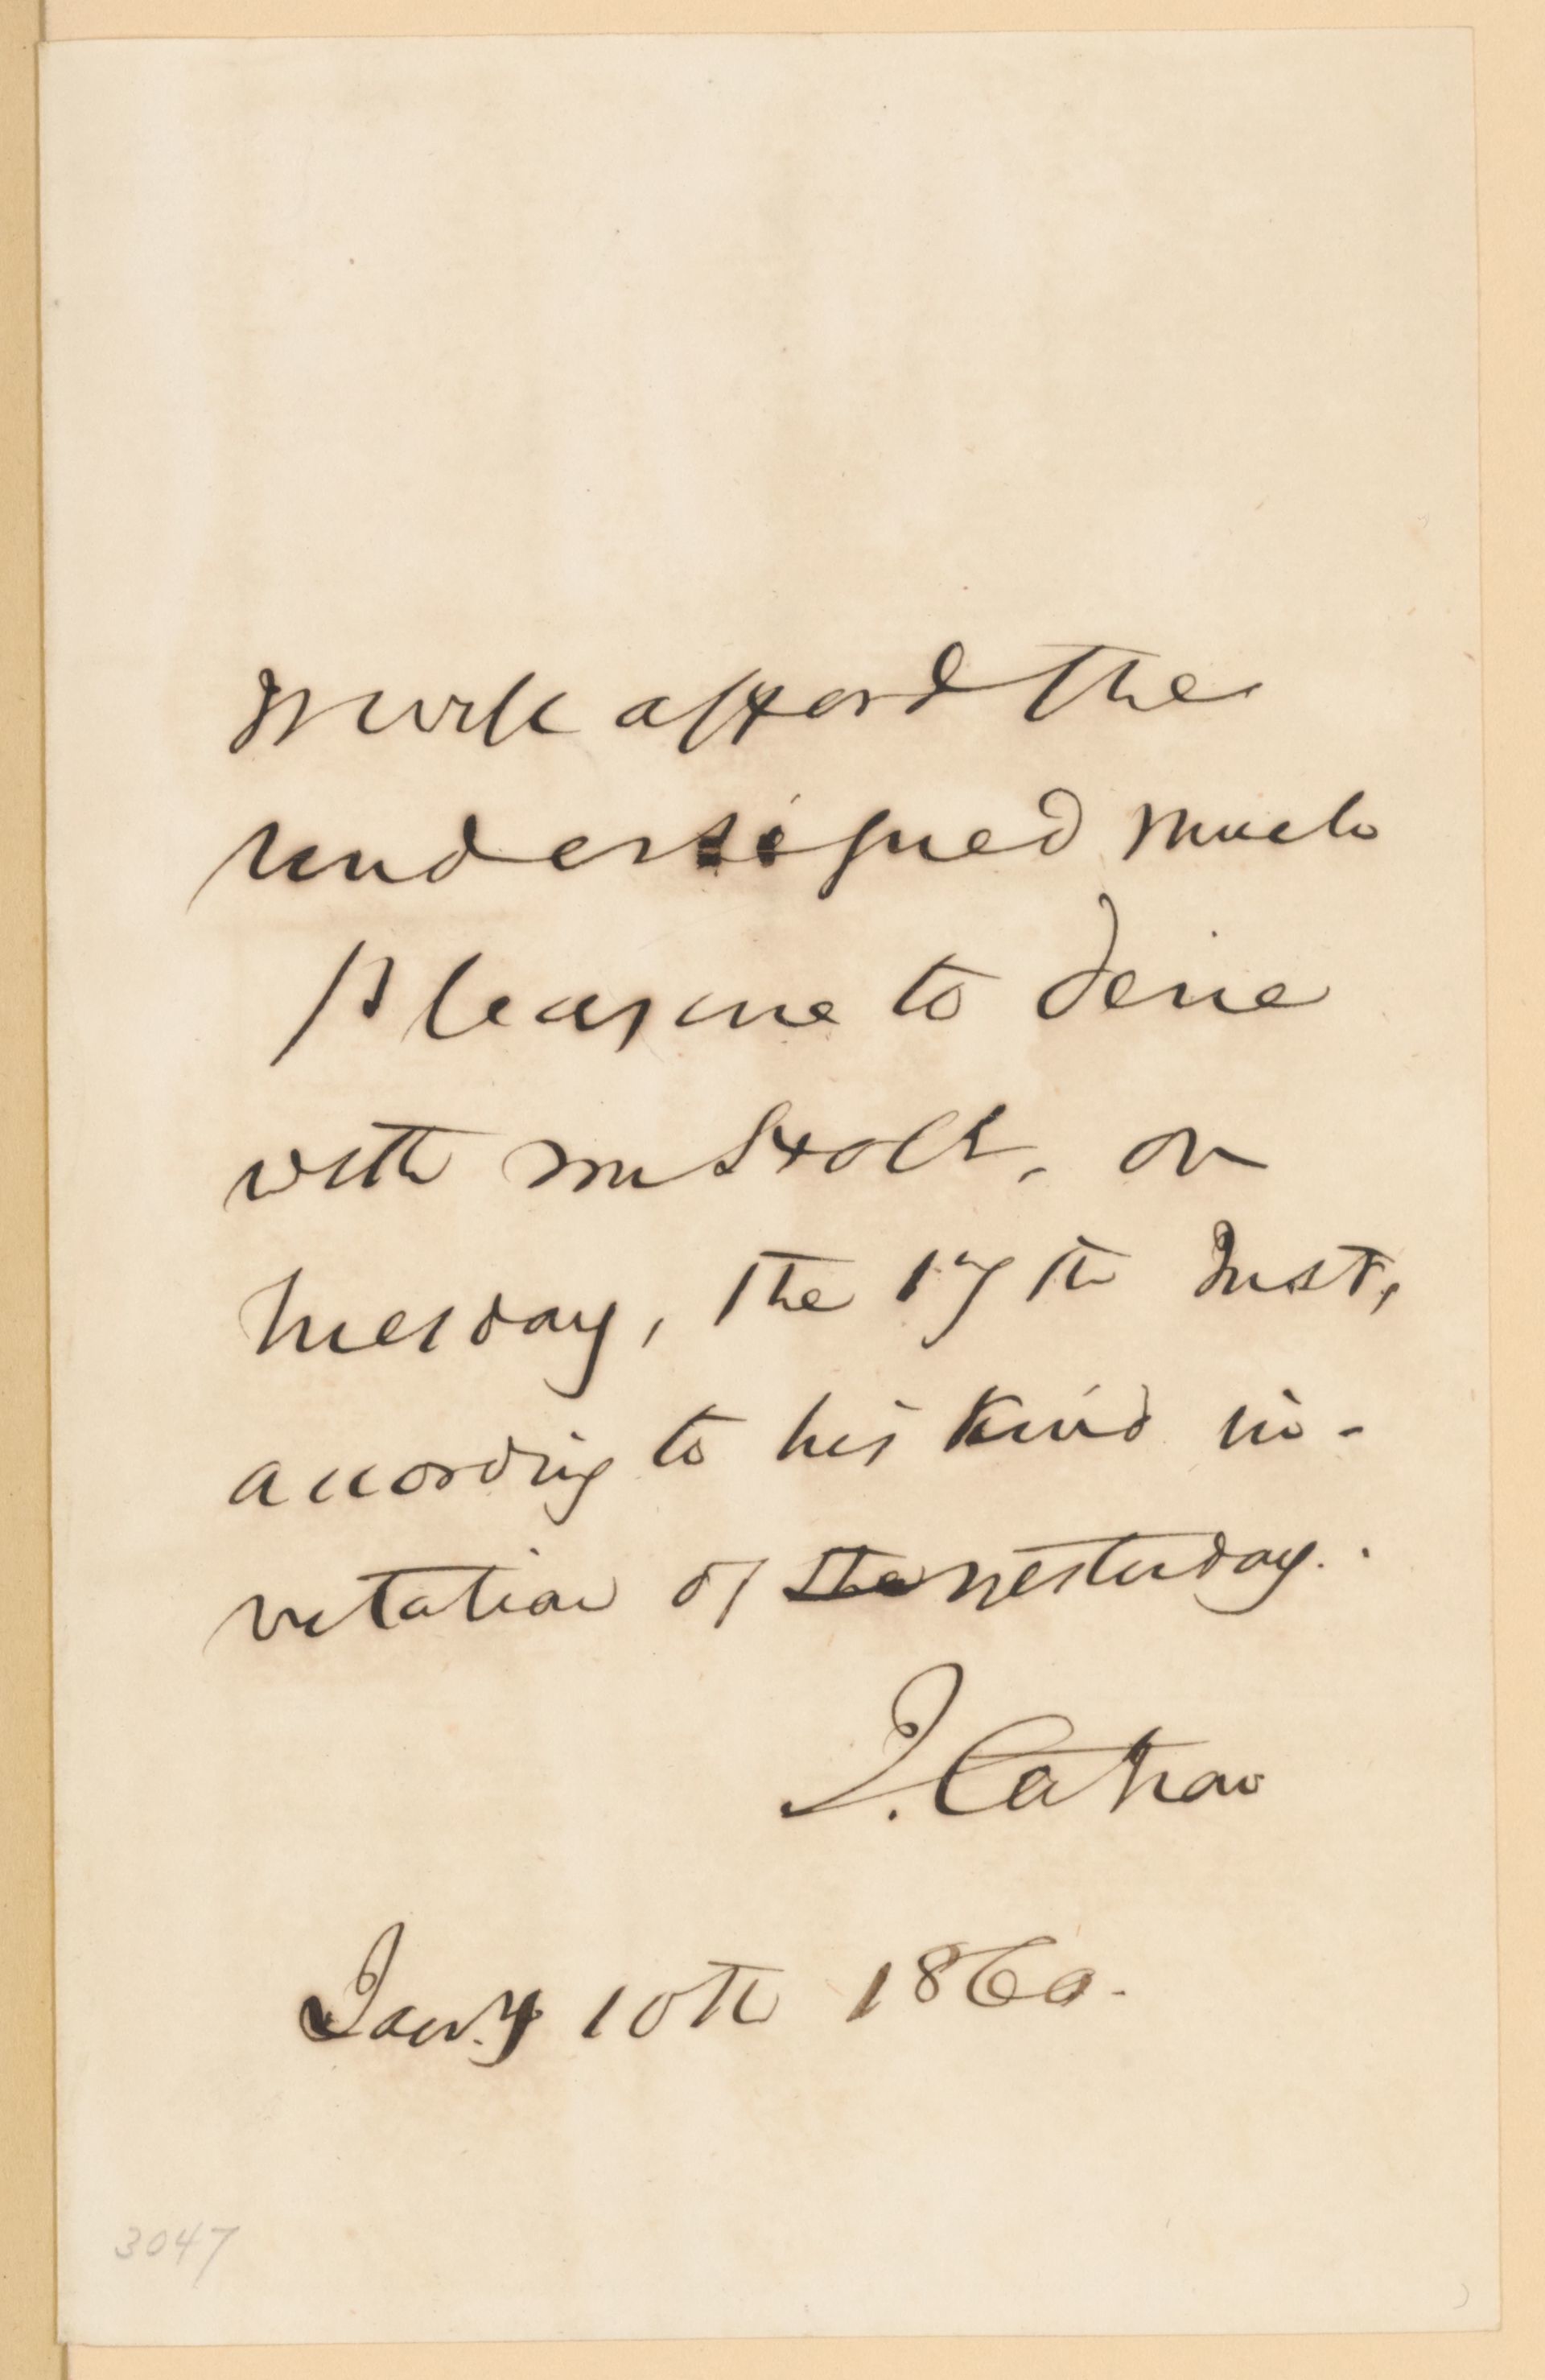 It will afford the
undersigned much
pleasure to dine
with Mr Holt, on
tuesday, the 17th Inst,
according to his kind in-
vitation of the yesterday.
J. Catron
Jany 10th 1860.
3047